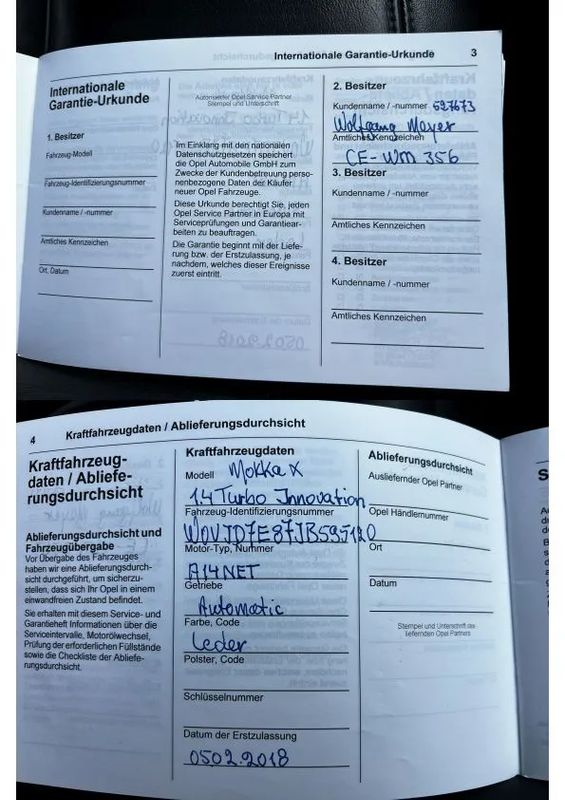 Internationale Garantie-Urkunde 3
Internationale
Garantie-Urkunde
1. Besitzer
Fahrzeug-Modell
Fahrzeug-Identifizierungsnummer
Kundenname / -nummer
Amtliches Kennzeichen
Ort, Datum
Autorisierter Opel Service Partner
Stempel und Unterschrift
Im Einklang mit den nationalen
Datenschutzgesetzen speichert
die Opel Automobile GmbH zum
Zwecke der Kundenbetreuung perso-
nenbezogene Daten der Käufer
neuer Opel Fahrzeuge.
Diese Urkunde berechtigt Sie, jeden
Opel Service Partner in Europa mit
Serviceprüfungen und Garantiear-
beiten zu beauftragen.
Die Garantie beginnt mit der Liefe-
rung bzw. der Erstzulassung, je
nachdem, welches dieser Ereignisse
zuerst eintritt.
2. Besitzer
Kundenname / -nummer 597673
Wolfgang Mayer
Amtliches Kennzeichen
CE-WM 356
3. Besitzer
Kundenname / -nummer
Amtliches Kennzeichen
4. Besitzer
Kundenname / -nummer
Amtliches Kennzeichen
4 Kraftfahrzeugdaten / Ablieferungsdurchsicht
Kraftfahrzeug-
daten / Abliefe-
rungsdurchsicht
Ablieferungsdurchsicht und
Fahrzeugübergabe
Vor Übergabe des Fahrzeuges
haben wir eine Ablieferungsdurch-
sicht durchgeführt, um sicherzu-
stellen, dass sich Ihr Opel in einem
einwandfreien Zustand befindet.
Sie erhalten mit diesem Service- und
Garantieheft Informationen über die
Serviceintervalle, Motorölwechsel,
Prüfung der erforderlichen Füllstände
sowie die Checkliste der Abliefe-
rungsdurchsicht.
Kraftfahrzeugdaten
Modell Mokka X
1.4 Turbo Innovation
Fahrzeug-Identifizierungsnummer
W0VJD7E87JB595120
Motor-Typ, Nummer
A14NET
Getriebe
Automatic
Farbe, Code
Leder
Polster, Code
Schlüsselnummer
Datum der Erstzulassung
0502.2018
Ablieferungsdurchsicht
Ausliefernder Opel Partner
Opel Händlernummer
Ort
Datum
Stempel und Unterschrift des
liefernden Opel Partners